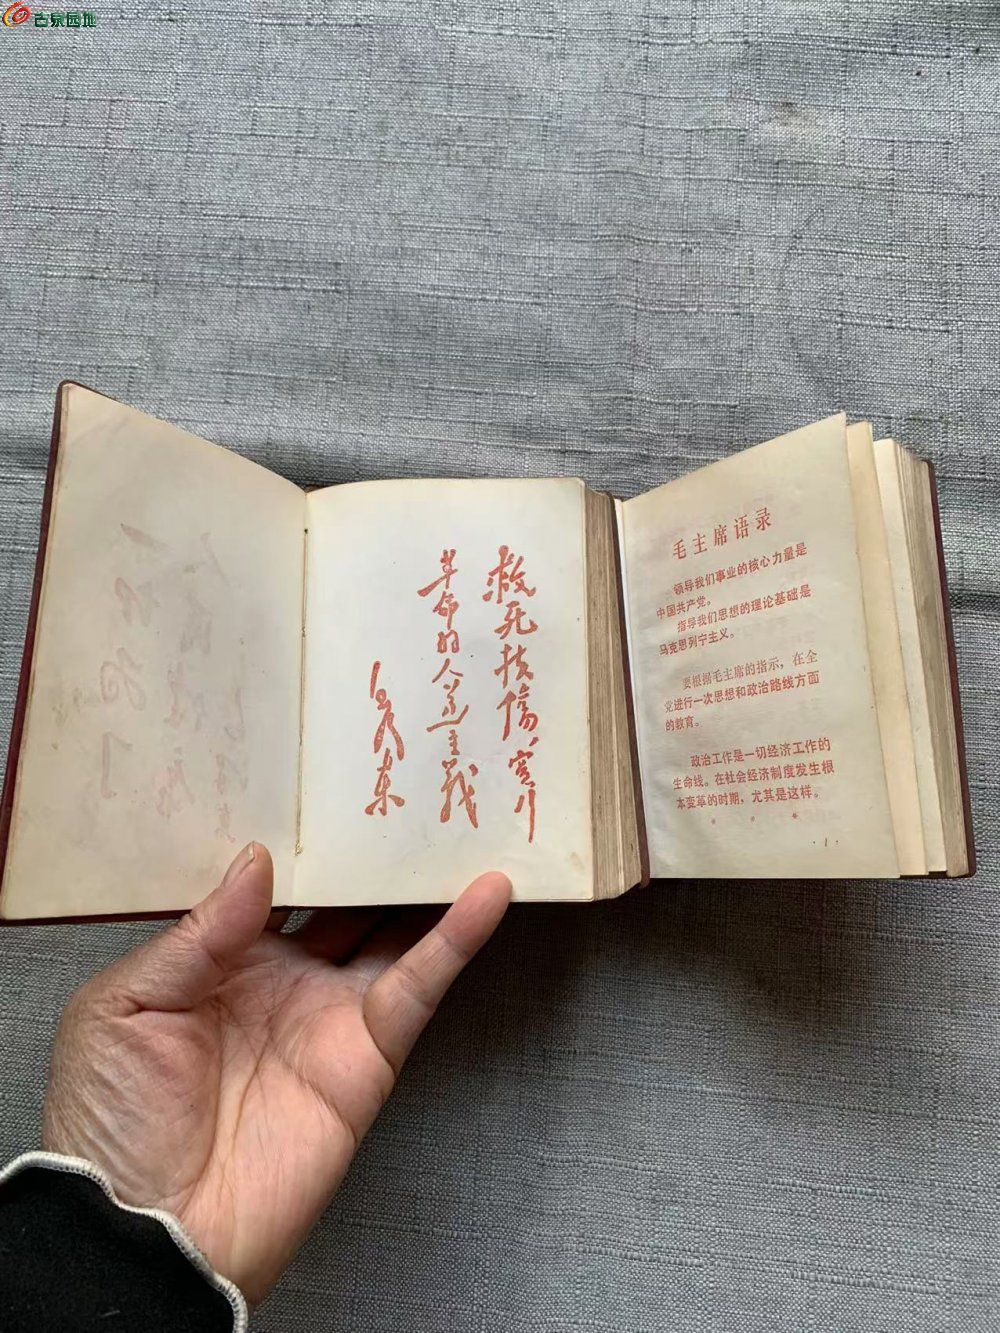 古泉园地
救死扶傷、实行
革命的人道主義
毛泽东
毛主席语录
领导我们事业的核心力量是
中国共产党。
指导我们思想的理论基础是
马克思列宁主义。
要根据毛主席的指示，在全
党进行一次思想和政治路线方面
的教育。
政治工作是一切经济工作的
生命线。在社会经济制度发生根
本变革的时期，尤其是这样。
* * *
· 1 ·